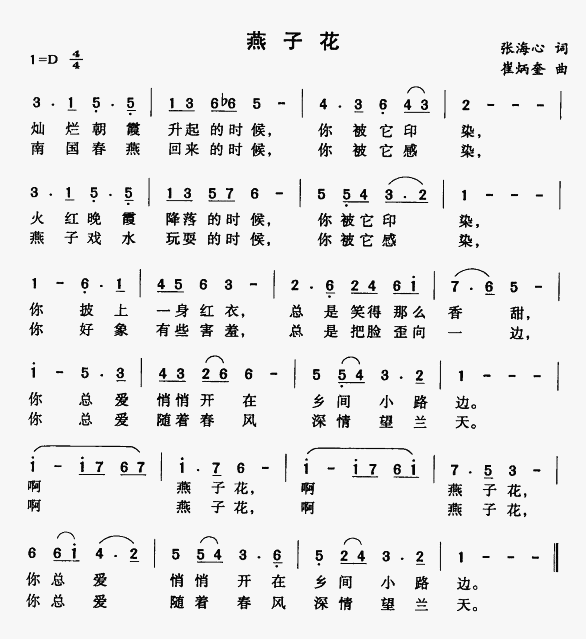 燕子花
1=D 4/4
张海心 词
崔炳奎 曲
3 · 1 5 · 5 | 1 3 6 ♭6 5 - | 4 · 3 6 4 3 | 2 - - - |
灿 烂 朝 霞 升起的时候, 你 被它印 染,
南 国 春 燕 回来的时候, 你 被它感 染,
3 · 1 5 · 5 | 1 3 5 7 6 - | 5 5 4 3 · 2 | 1 - - - |
火 红 晚 霞 降落的时候, 你被它印 染,
燕 子 戏 水 玩耍的时候, 你被它感 染,
1 - 6 · 1 | 4 5 6 3 - | 2 · 6 2 4 6 i | 7 · 6 5 - |
你 披 上 一身红衣, 总 是笑得那么 香 甜,
你 好 象 有些害羞, 总 是把脸歪向 一 边,
i - 5 · 3 | 4 3 2 6 6 - | 5 5 4 3 · 2 | 1 - - - |
你 总 爱 悄悄开 在 乡 间 小 路 边。
你 总 爱 随着春 风 深 情 望 兰 天。
i - i 7 6 7 | i · 7 6 - | i - i 7 6 i | 7 · 5 3 - |
啊 燕 子 花, 啊 燕 子 花,
啊 燕 子 花, 啊 燕 子 花,
6 6 i 4 · 2 | 5 5 4 3 · 6 | 5 2 4 3 · 2 | 1 - - - ‖
你 总 爱 悄 悄 开 在 乡 间 小 路 边。
你 总 爱 随 着 春 风 深 情 望 兰 天。